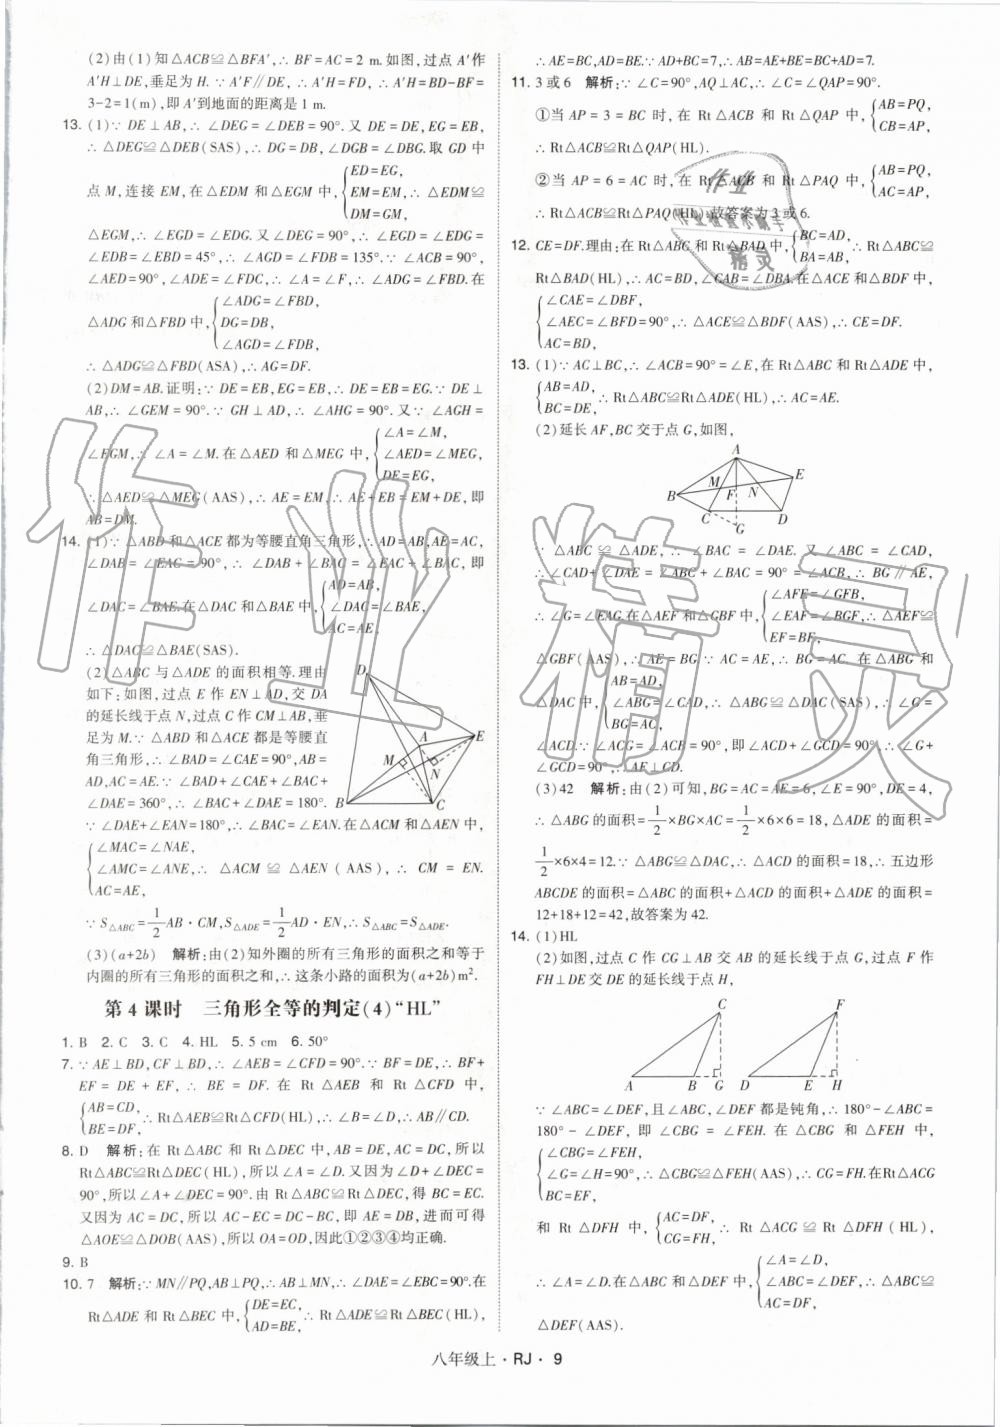 (2)由(1)知△ACB≌△BFA′,∴BF=AC=2 m.如图,过点A′作
A′H⊥DE,垂足为H.∵A′F∥DE,∴A′H=FD,∴A′H=BD-BF=
3-2=1(m),即A′到地面的距离是1 m.
13. (1)∵DE⊥AB,∴∠DEG=∠DEB=90°.又DE=DE,EG=EB,
∴△DEG≌△DEB(SAS),∴DG=DB,∠DGB=∠DBG.取GD中
点M,连接EM,在△EDM和△EGM中,{ED=EG,
EM=EM,∴△EDM≌
DM=GM,
△EGM,∴∠EGD=∠EDG.又∠DEG=90°,∴∠EGD=∠EDG=
∠EDB=∠EBD=45°,∴∠AGD=∠FDB=135°.∵∠ACB=90°,
∠AED=90°,∠ADE=∠FDC,∴∠A=∠F,∴∠ADG=∠FBD.在
△ADG和△FBD中,{∠ADG=∠FBD,
DG=DB,
∠AGD=∠FDB,
∴△ADG≌△FBD(ASA),∴AG=DF.
(2)DM=AB.证明:∵DE=EB,EG=EB,∴DE=EB=EG.∵DE⊥
AB,∴∠GEM=90°.∵GH⊥AD,∴∠AHG=90°.又∵∠AGH=
∠EGM,∴∠A=∠M.在△AED和△MEG中,{∠A=∠M,
∠AED=∠MEG,
DE=EG,
∴△AED≌△MEG(AAS),∴AE=EM,∴AE+EB=EM+DE,即
AB=DM.
14. (1)∵△ABD和△ACE都为等腰直角三角形,∴AD=AB,AE=AC,
∠DAB=∠EAC=90°,∴∠DAB+∠BAC=∠EAC+∠BAC,即
∠DAC=∠BAE.在△DAC和△BAE中,{AD=AB,
∠DAC=∠BAE,
AC=AE,
∴△DAC≌△BAE(SAS).
(2)△ABC与△ADE的面积相等.理由
如下:如图,过点E作EN⊥AD,交DA
的延长线于点N,过点C作CM⊥AB,垂
足为M.∵△ABD和△ACE都是等腰直
角三角形,∴∠BAD=∠CAE=90°,AB=
AD,AC=AE.∵∠BAD+∠CAE+∠BAC+
∠DAE=360°,∴∠BAC+∠DAE=180°.
D
A
E
M
N
B
C
∵∠DAE+∠EAN=180°,∴∠BAC=∠EAN.在△ACM和△AEN中,
{∠MAC=∠NAE,
∠AMC=∠ANE,∴△ACM≌△AEN(AAS),∴CM=EN.
AC=AE,
∵S△ABC=1/2AB·CM,S△ADE=1/2AD·EN,∴S△ABC=S△ADE.
(3)(a+2b) 解析:由(2)知外圈的所有三角形的面积之和等于
内圈的所有三角形的面积之和,∴这条小路的面积为(a+2b)m².
第4课时 三角形全等的判定(4)“HL”
1. B 2. C 3. C 4. HL 5. 5 cm 6. 50°
7. ∵AE⊥BD,CF⊥BD,∴∠AEB=∠CFD=90°.∵BF=DE,∴BF+
EF=DE+EF,∴BE=DF.在Rt△AEB和Rt△CFD中,
{AB=CD,
BE=DF,∴Rt△AEB≌Rt△CFD(HL),∴∠B=∠D,∴AB∥CD.
8. D 解析:在Rt△ABC和Rt△DEC中,AB=DE,AC=DC,所以
Rt△ABC≌Rt△DEC(HL),所以∠A=∠D.又因为∠D+∠DEC=
90°,所以∠A+∠DEC=90°.由Rt△ABC≌Rt△DEC,得BC=EC.
又因为AC=DC,所以AC-EC=DC-BC,即AE=DB,进而可得
△AOE≌△DOB(AAS),所以OA=OD,因此①②③④均正确.
9. B
10. 7 解析:∵MN∥PQ,AB⊥PQ,∴AB⊥MN,∴∠DAE=∠EBC=90°.在
Rt△ADE和Rt△BEC中,{DE=EC,
AD=BE,∴Rt△ADE≌Rt△BEC(HL),
∴AE=BC,AD=BE.∵AD+BC=7,∴AB=AE+BE=BC+AD=7.
11. 3或6 解析:∵∠C=90°,AQ⊥AC,∴∠C=∠QAP=90°.
①当AP=3=BC时,在Rt△ACB和Rt△QAP中,{AB=PQ,
CB=AP,
∴Rt△ACB≌Rt△QAP(HL).
②当AP=6=AC时,在Rt△ACB和Rt△PAQ中,{AB=PQ,
AC=AP,
∴Rt△ACB≌Rt△PAQ(HL).故答案为3或6.
12. CE=DF.理由:在Rt△ABC和Rt△BAD中,{BC=AD,
BA=AB,∴Rt△ABC≌
Rt△BAD(HL),∴AC=BD,∠CAB=∠DBA.在△ACE和△BDF中,
{∠CAE=∠DBF,
∠AEC=∠BFD=90°,∴△ACE≌△BDF(AAS),∴CE=DF.
AC=BD,
13. (1)∵AC⊥BC,∴∠ACB=90°=∠E,在Rt△ABC和Rt△ADE中,
{AB=AD,
BC=DE,∴Rt△ABC≌Rt△ADE(HL),∴AC=AE.
(2)延长AF,BC交于点G,如图,
A
E
M
F
N
B
C
D
G
∵△ABC≌△ADE,∴∠BAC=∠DAE.又∠ABC=∠CAD,
∴∠CAD+∠DAE=∠ABC+∠BAC=90°=∠ACB,∴BG∥AE,
∴∠G=∠EAG.在△AEF和△GBF中,{∠AFE=∠GFB,
∠EAF=∠BGF,∴△AEF≌
EF=BF,
△GBF(AAS),∴AE=BG.∵AC=AE,∴BG=AC.在△ABG和
△DAC中,{AB=AD,
∠ABG=∠CAD,∴△ABG≌△DAC(SAS),∴∠G=
BG=AC,
∠ACD.∵∠ACG=∠ACB=90°,即∠ACD+∠GCD=90°,∴∠G+
∠GCD=90°,∴AF⊥CD.
(3)42 解析:由(2)可知,BG=AC=AE=6,∠E=90°,DE=4,
∴△ABG的面积=1/2×BG×AC=1/2×6×6=18,△ADE的面积=
1/2×6×4=12.∵△ABG≌△DAC,∴△ACD的面积=18,∴五边形
ABCDE的面积=△ABC的面积+△ACD的面积+△ADE的面积=
12+18+12=42,故答案为42.
14. (1)HL
(2)如图,过点C作CG⊥AB交AB的延长线于点G,过点F作
FH⊥DE交DE的延长线于点H,
C
F
A
B
G
D
E
H
∵∠ABC=∠DEF,且∠ABC,∠DEF都是钝角,∴180°-∠ABC=
180°-∠DEF,即∠CBG=∠FEH.在△CBG和△FEH中,
{∠CBG=∠FEH,
∠G=∠H=90°,∴△CBG≌△FEH(AAS),∴CG=FH.在Rt△ACG
BC=EF,
和Rt△DFH中,{AC=DF,
CG=FH,∴Rt△ACG≌Rt△DFH(HL),
∴∠A=∠D.在△ABC和△DEF中,{∠A=∠D,
∠ABC=∠DEF,∴△ABC≌
AC=DF,
△DEF(AAS).
八年级上·RJ·9
作业精灵